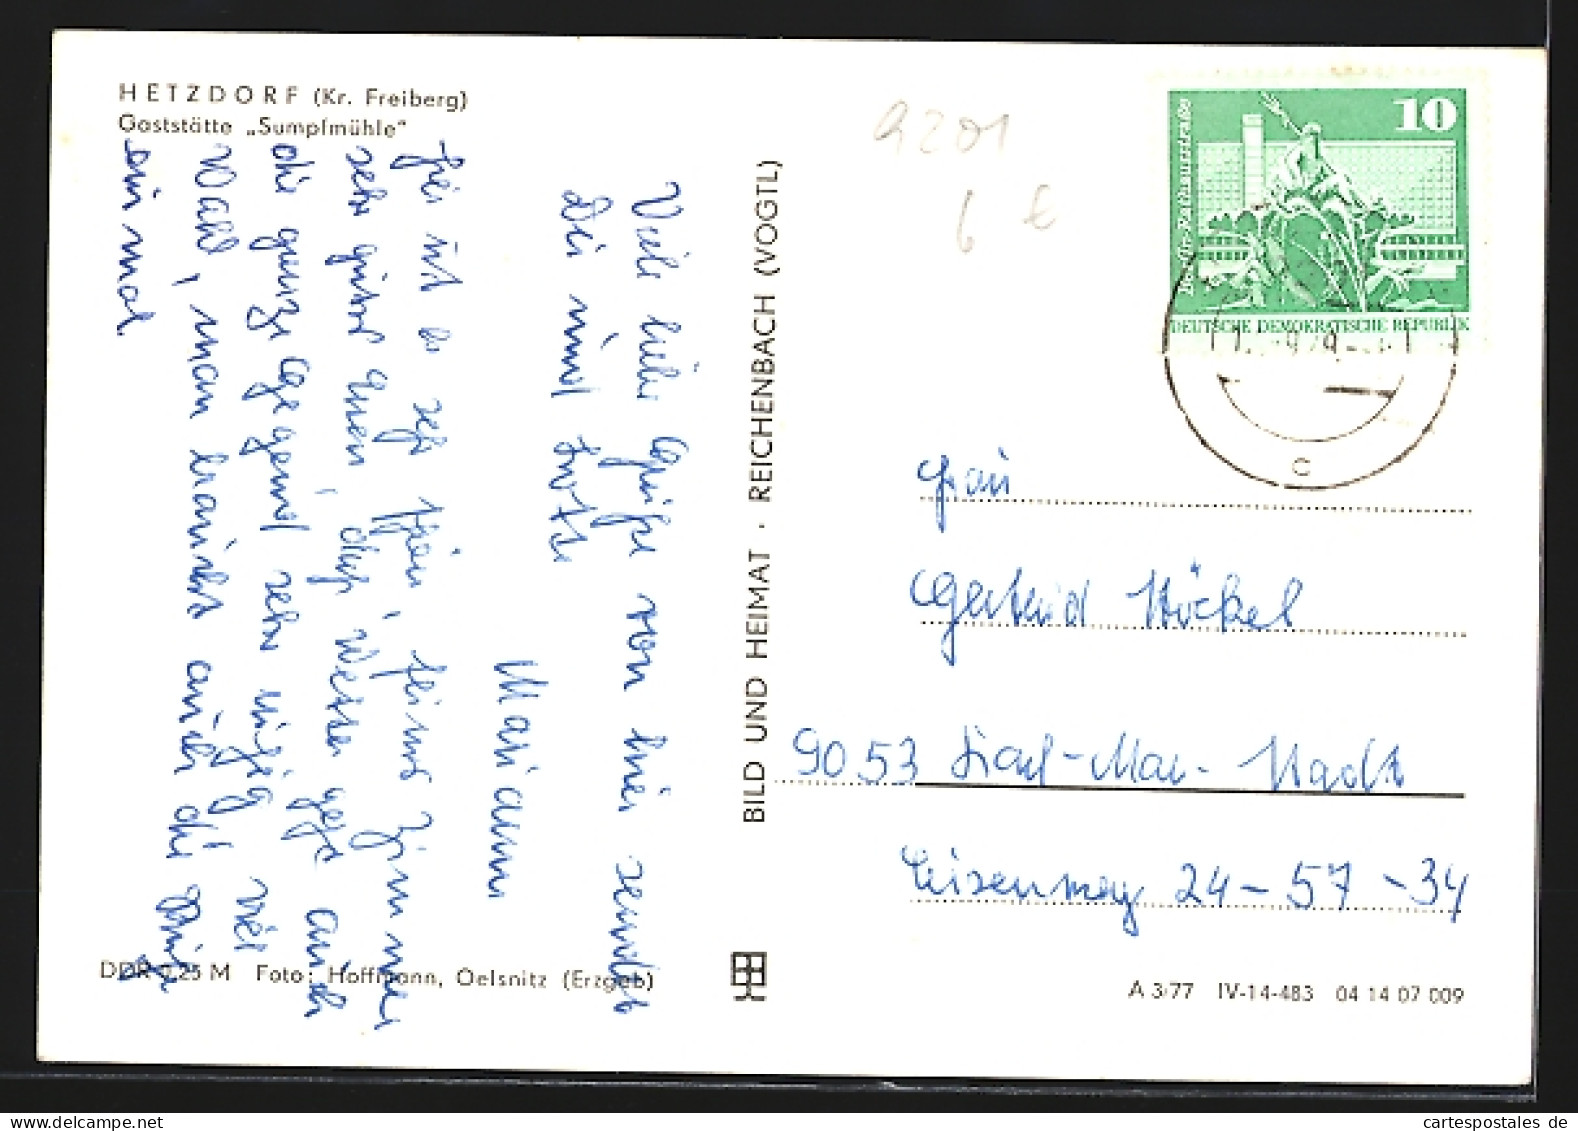 HETZDORF (Kr. Freiberg)
Gaststätte „Sumpfmühle"
9201
6 €
10
Berlin-Rathausstraße
DEUTSCHE DEMOKRATISCHE REPUBLIK
C
Viele liebe Grüße von hier sendet
Dir und
Mariann
ist es sehr schön, Zimmer
sehr gutes Essen, das Wetter geht auch
die ganze Gegend sehr viel
Wald, man braucht auch die Ruhe
ein mal
BILD UND HEIMAT · REICHENBACH (VOGTL)
Frau
Gertrud Stöckel
9053 Karl-Mar-Stadt
Eisenweg 24-57-34
DDR 0,25 M Foto: Hoffmann, Oelsnitz (Erzgeb)
A 3/77 IV-14-483 04 14 07 009
www.cartespostales.de